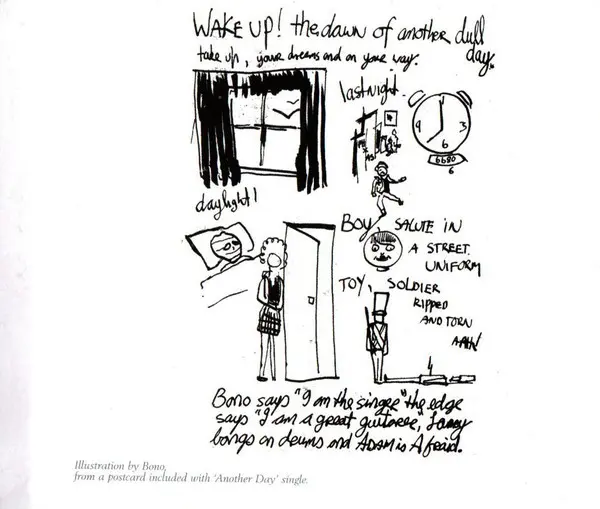 WAKE UP! the dawn of another dull day.
take up, your dreams and on your way.
last night.
9 3
6
6680
6
daylight!
BOY, SALUTE IN
A STREET
UNIFORM
TOY, SOLDIER
RIPPED
AND TORN
Bono says "I am the singer" the edge
says "I am a great guitaree", Larry
bongs on drums and ADAM is Afraid.
Illustration by Bono,
from a postcard included with 'Another Day' single.